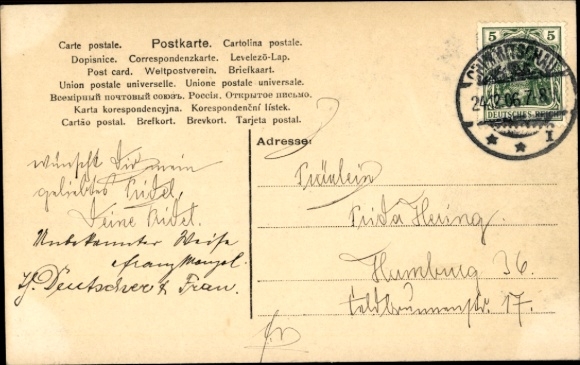 Carte postale. Postkarte. Cartolina postale.
Dopisnice. Correspondenzkarte. Levelező-Lap.
Post card. Weltpostverein. Briefkaart.
Union postale universelle. Unione postale universale.
Всемірный почтовый союзъ. Россія. Открытое письмо.
Karta korespondencyjna. Korespondenční lístek.
Cartão postal. Brefkort. Brevkort. Tarjeta postal.
5 5
24.12.06.7-8
DEUTSCHES REICH
* * 1
Adresse:
wünscht Dir mein
geliebtes
Deine
Unbekannter Weise
Deutscher & Frau.
Fräulein
Frida Hering.
Hamburg 36.
Feldbrunnenstr. 17.